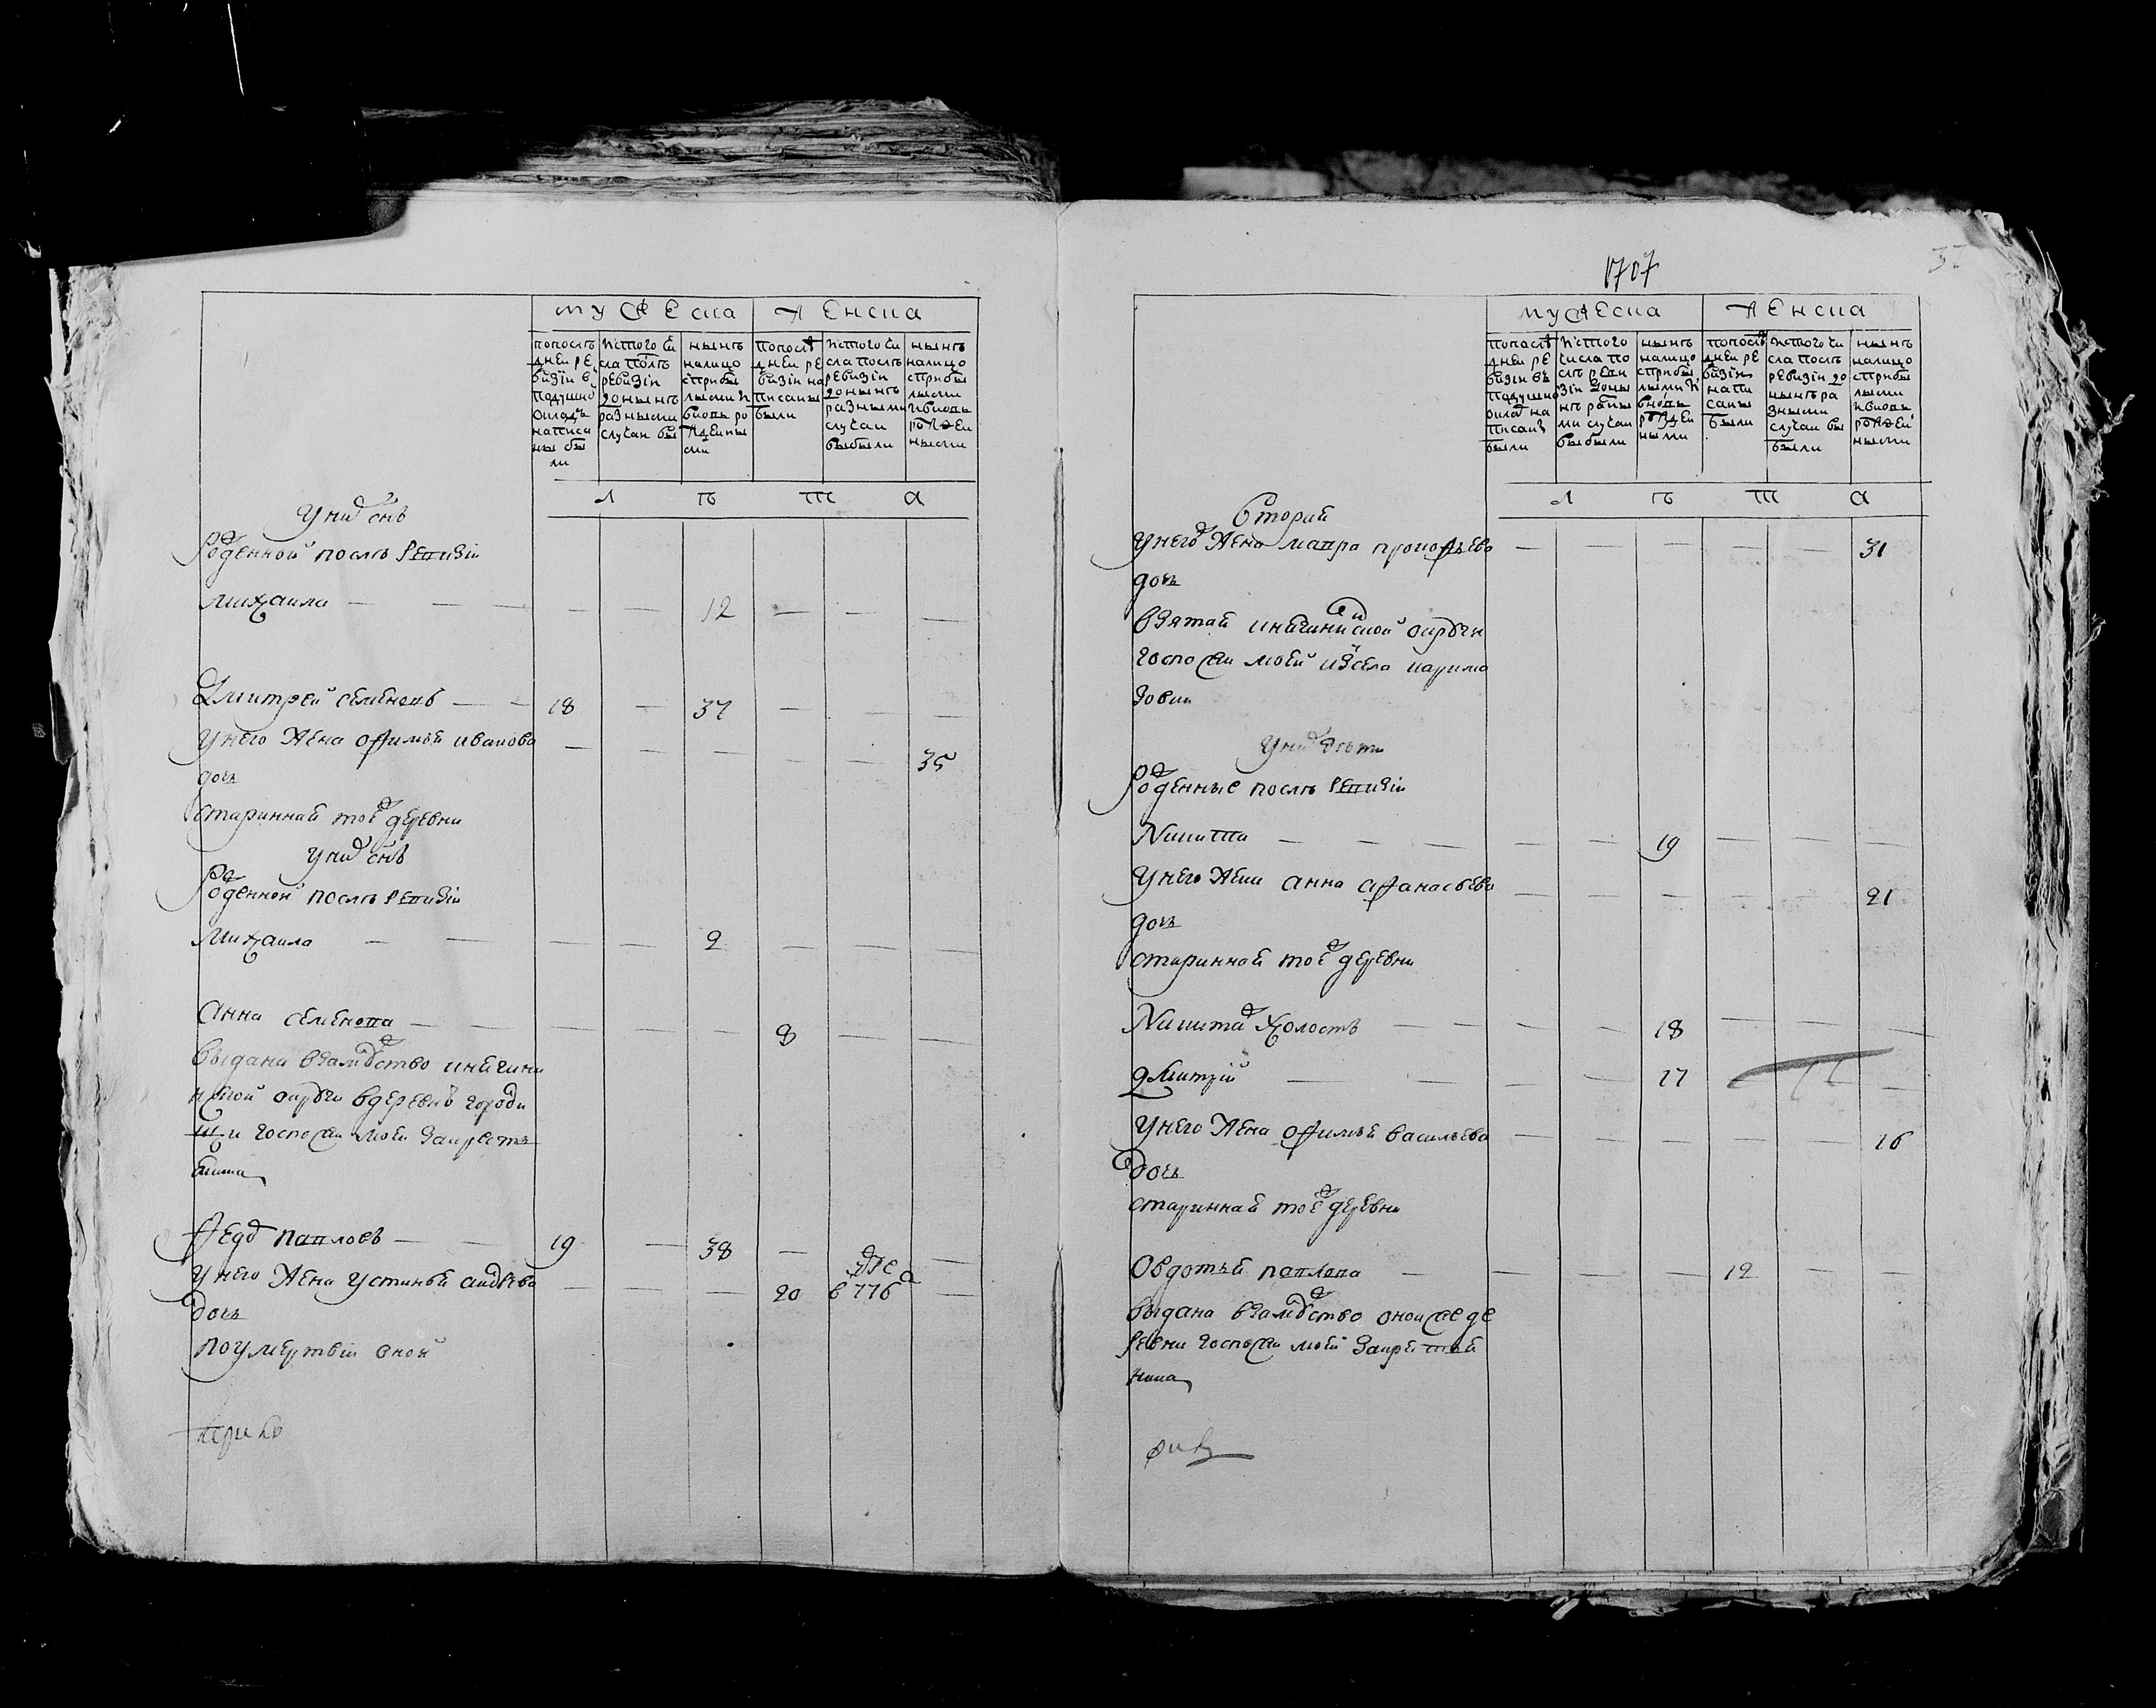 мужеска женска
попослѣ дней ре визiи в подушно окладъ написа ны бы ли
ис того чи сла послѣ ревизiи до нынѣ разными случаи вы
нынѣ налицо с прибы лыми и вновь ро жденны ми
попослѣ дней ре визiи на писаны были
ис того чи сла послѣ ревизiи до нынѣ разными случаи выбыли
нынѣ налицо с прибы лыми и вновь рожден ными
л ѣ т а
у них снъ
рожденной послѣ ревизiи
михаила 12
дмитрей семеновъ 18 37
у него жена офимья иванова 35
дочь
старинная тое ж деревни
у них снъ
рожденной послѣ ревизiи
михаила 9
анна семенова 8
выдана взамужство
округи в деревнѣ городи
щи господи моеи за крестья
нина
федор павловъ 19 38
у него жена устинья андреева 20 в 776
дочь
по умертвiи оной
1707
мужеска женска
попослѣ дней ре визiи въ подушно оклад на писаны были
ис того числа по слѣ реви зiи до ны нѣ разны ми случаи выбыли
нынѣ налицо с прибы лыми и вновь рожден ными
попослѣ дней ре визiи напи саны были
ис того чи сла послѣ ревизiи до нынѣ ра зными случаи вы были
нынѣ налицо с прибы лыми и вновь рожден ными
л ѣ т а
вторая
у него ж жена мавра прокофьева 31
дочь
взятая округи
господи моей из села карма
зовки
у них дѣти
рожденные послѣ ревизiи
никита 19
у него жена анна афанасьева 21
дочь
старинная тое ж деревни
никита ж холостъ 18
дмитрiй 17
у него жена офимья васильева 16
дочь
старинная тое ж деревни
овдотья павлова 12
выдана взамужство оной же де
ревни господи моей за крестья
нина